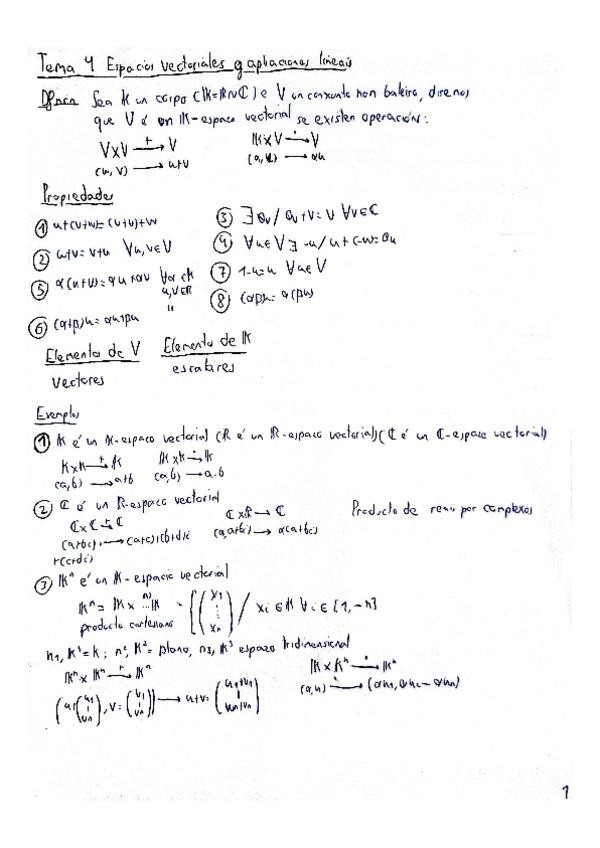 Tema 4 Espacios vectoriales y apliaciones lineais
Dfnición Sea K un corpo (K=R ∪ C) e V un conxunto non baleiro, diremos
que V é un K-espaco vectorial se existen operación:
V×V —+→ V    K×V —·→ V
(u,v) → u+v    (α,u) → αu
Propiedades
① u+(v+w)=(u+v)+w    ③ ∃ 0v / 0v+v=v ∀v∈C
② u+v=v+u ∀u,v∈V    ④ ∀u∈V ∃ -u / u+(-u)=0u
⑤ α(u+v)=αu+αv ∀α∈K    ⑦ 1·u=u ∀u∈V
u,v∈R
⑥ (α+β)u=αu+βu    ⑧ (αβ)u=α(βu)
Elemento de V    Elemento de K
vectores    escalares
Exemplos
① K é un K-espaco vectorial (R é un R-espaco vectorial)(C é un C-espaco vectorial)
K×K —+→ K    K×K —·→ K
(a,b) → a+b    (a,b) → a·b
② C é un R-espaco vectorial
C×C —+→ C    C×R → C    Producto de reno por complexos
③ Kⁿ é un K-espacio vectorial
Kⁿ = K× ⁿ⁾ ··K = {(x₁ ⋮ xₙ) / xi ∈ K ∀i∈[1,-n]
producto cartesiano
n₁, K¹=K; n², K²= plano, n₃, K³ espazo tridimensional
Kⁿ×Kⁿ —+→ Kⁿ    K×Kⁿ —·→ Kⁿ
(u=(u₁ ⋮ uₙ), v=(v₁ ⋮ vₙ)) → u+v=(u₁+v₁ ⋮ uₙ+vₙ)    (α,u) → (αu₁, αu₂ - αuₙ)
1